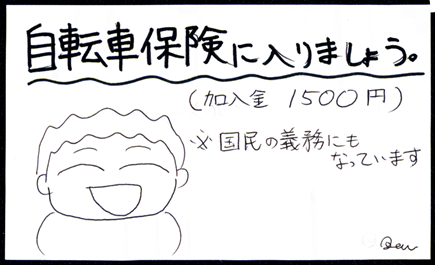 自転車保険に入りましょう。
(加入金 1500円)
※国民の義務にも
なっています